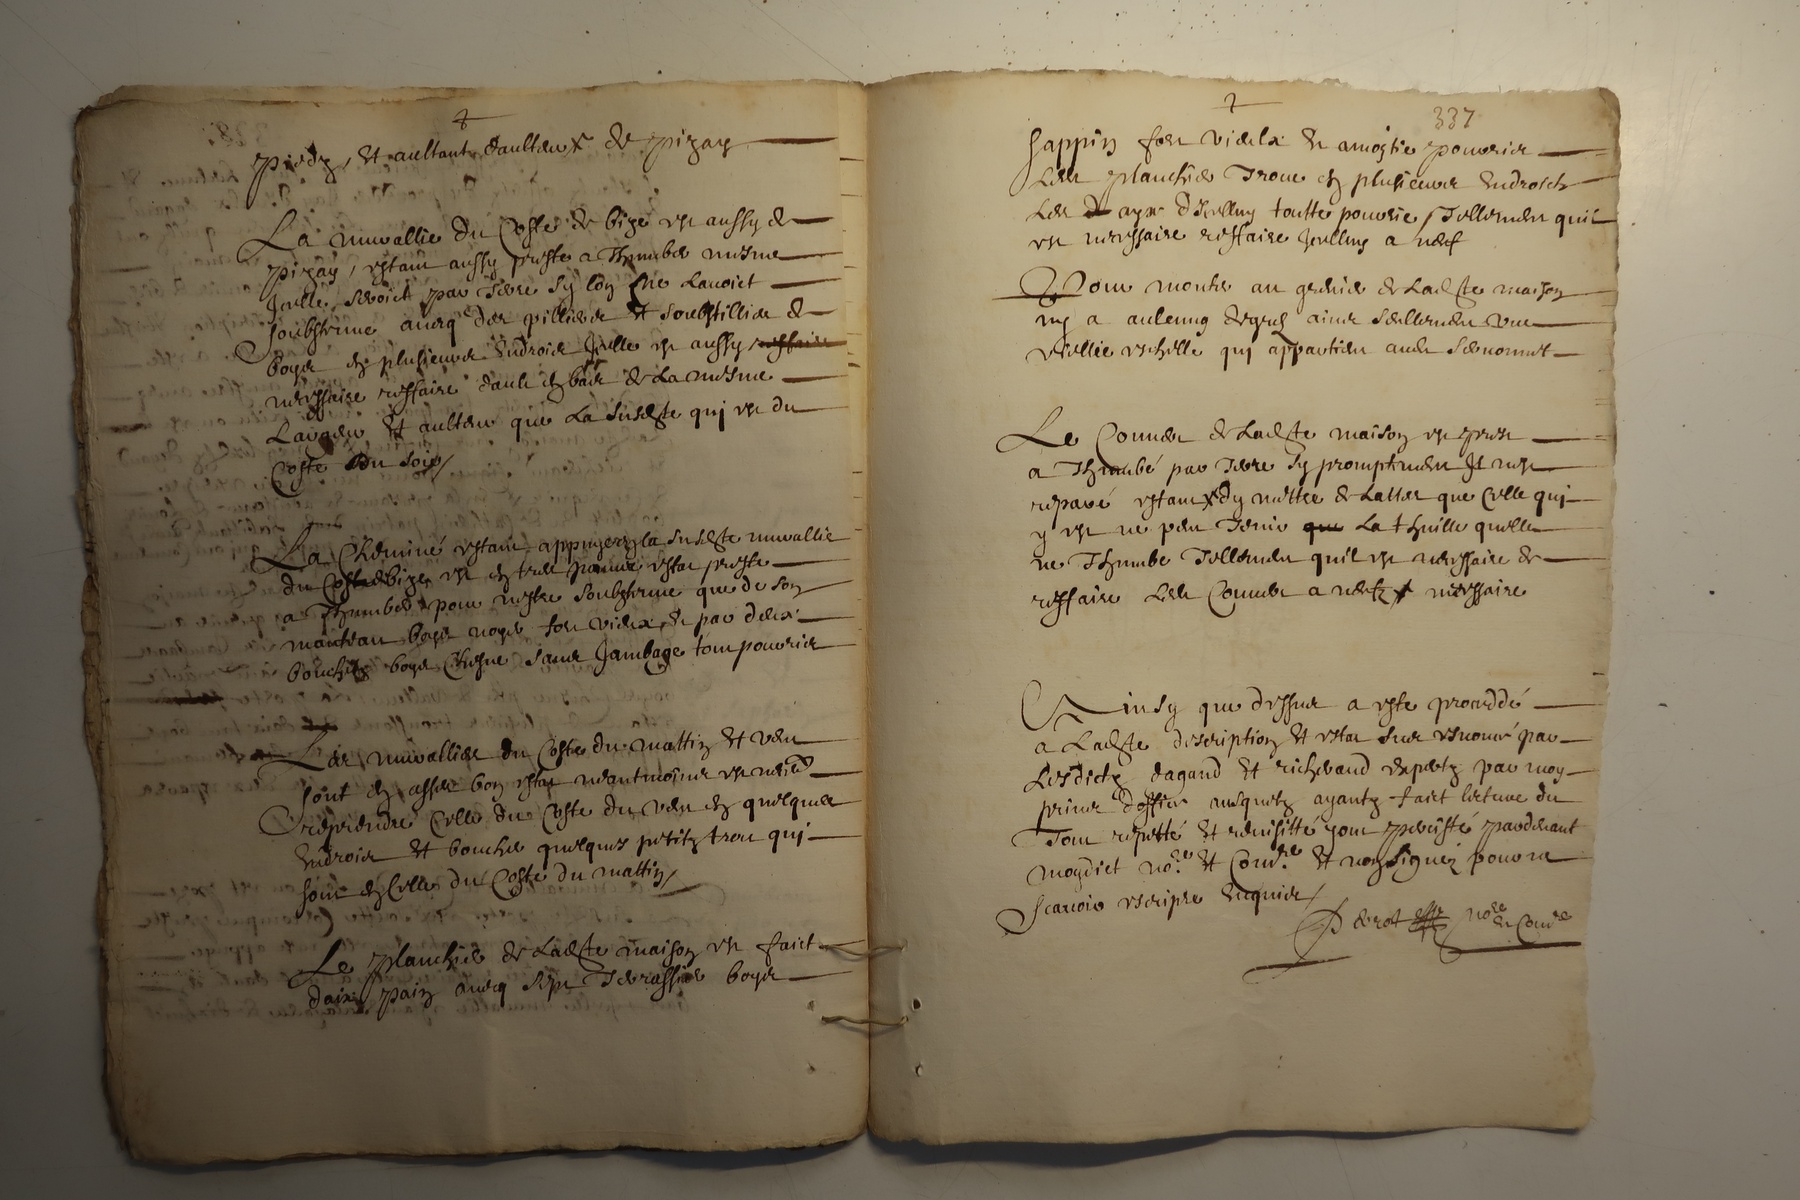 piedz, et aultant daulteur de pizay
La murallie du Coste de bize est aussy de
pizay, estant aussy preste a Thumber mesme
Jcelle seroict par terre sy lon ne Lauoict
soubstenue aueq des pilliers et soubstillier de
boys en plusieurs endroict Jcelle est aussy reffaire
necessaire reffaire dault en bas de La mesme
Largeur et aulteur que La susdte qui est du
Coste du soir
La Cheminé estant appuyer en la susdte murallie
du Coste de bize est en tres estat preste
a Thumber pour nestre soubstenue que de son
manteau boys noyer fort vieux et par deux
bouchetz boys Chesne sans Jambage tout pourrier
Les murallies du Coste du mattin et vent
sont en asses bon estat neantmoins est necre
reprendre Celle du Coste du vent en quelques
endroict et boucher quelques petitz trou qui
sont en Celle du Coste du mattin
Le plancher de Ladte maison est faict
daix sapin aueq sept Terassier boys
337
sappin fort vieulx et amoytie pourrier
Les plancher Troue en plusieurs endroictz
Les aix dIcelluy toutte pourrie Tellement quil
est necessaire reffaire Jcelluy a neuf
Pour monter au grenier de Ladte maison
ny a aulcung degrel ains seullement vne
viellie eschelle qui appartien
Le Couuer de Ladte maison est prest
a Thumbé par terre sy promptement Il nest
reparé estant dy mettre de Lattes que Celle qui
y est ne peu Tenir que La thuille quelle
ne Thumbe Tellement quil est necessaire de
reffaire Les Couuer a neufz necessaire
Ainsy que dessus a este proceddé
a Ladte description et estat sus esnoncé par
Lesdictz dagand et richerand expertz par moy
prins doffice ausquelz ayantz faict lecture du
Tout repetté et reuisitté y ont percisté pardeuant
moydict nore et Comre et nont signez pour ne
Scauoir escripre Enquier
nore et Comre